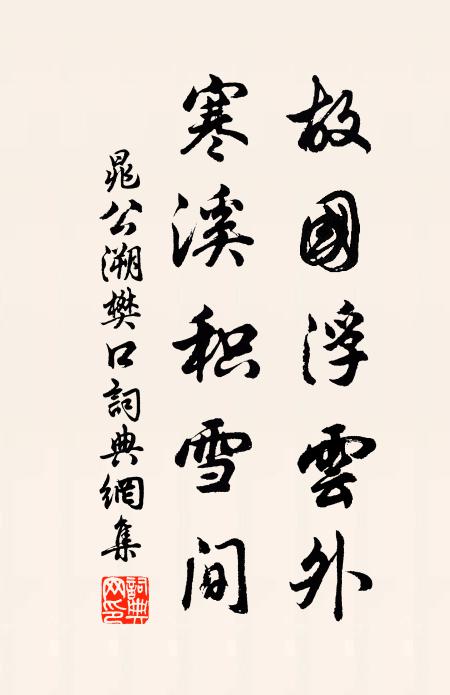 故國浮雲外
寒溪积雪間
晁公溯樊口詞典網集
詞典网印